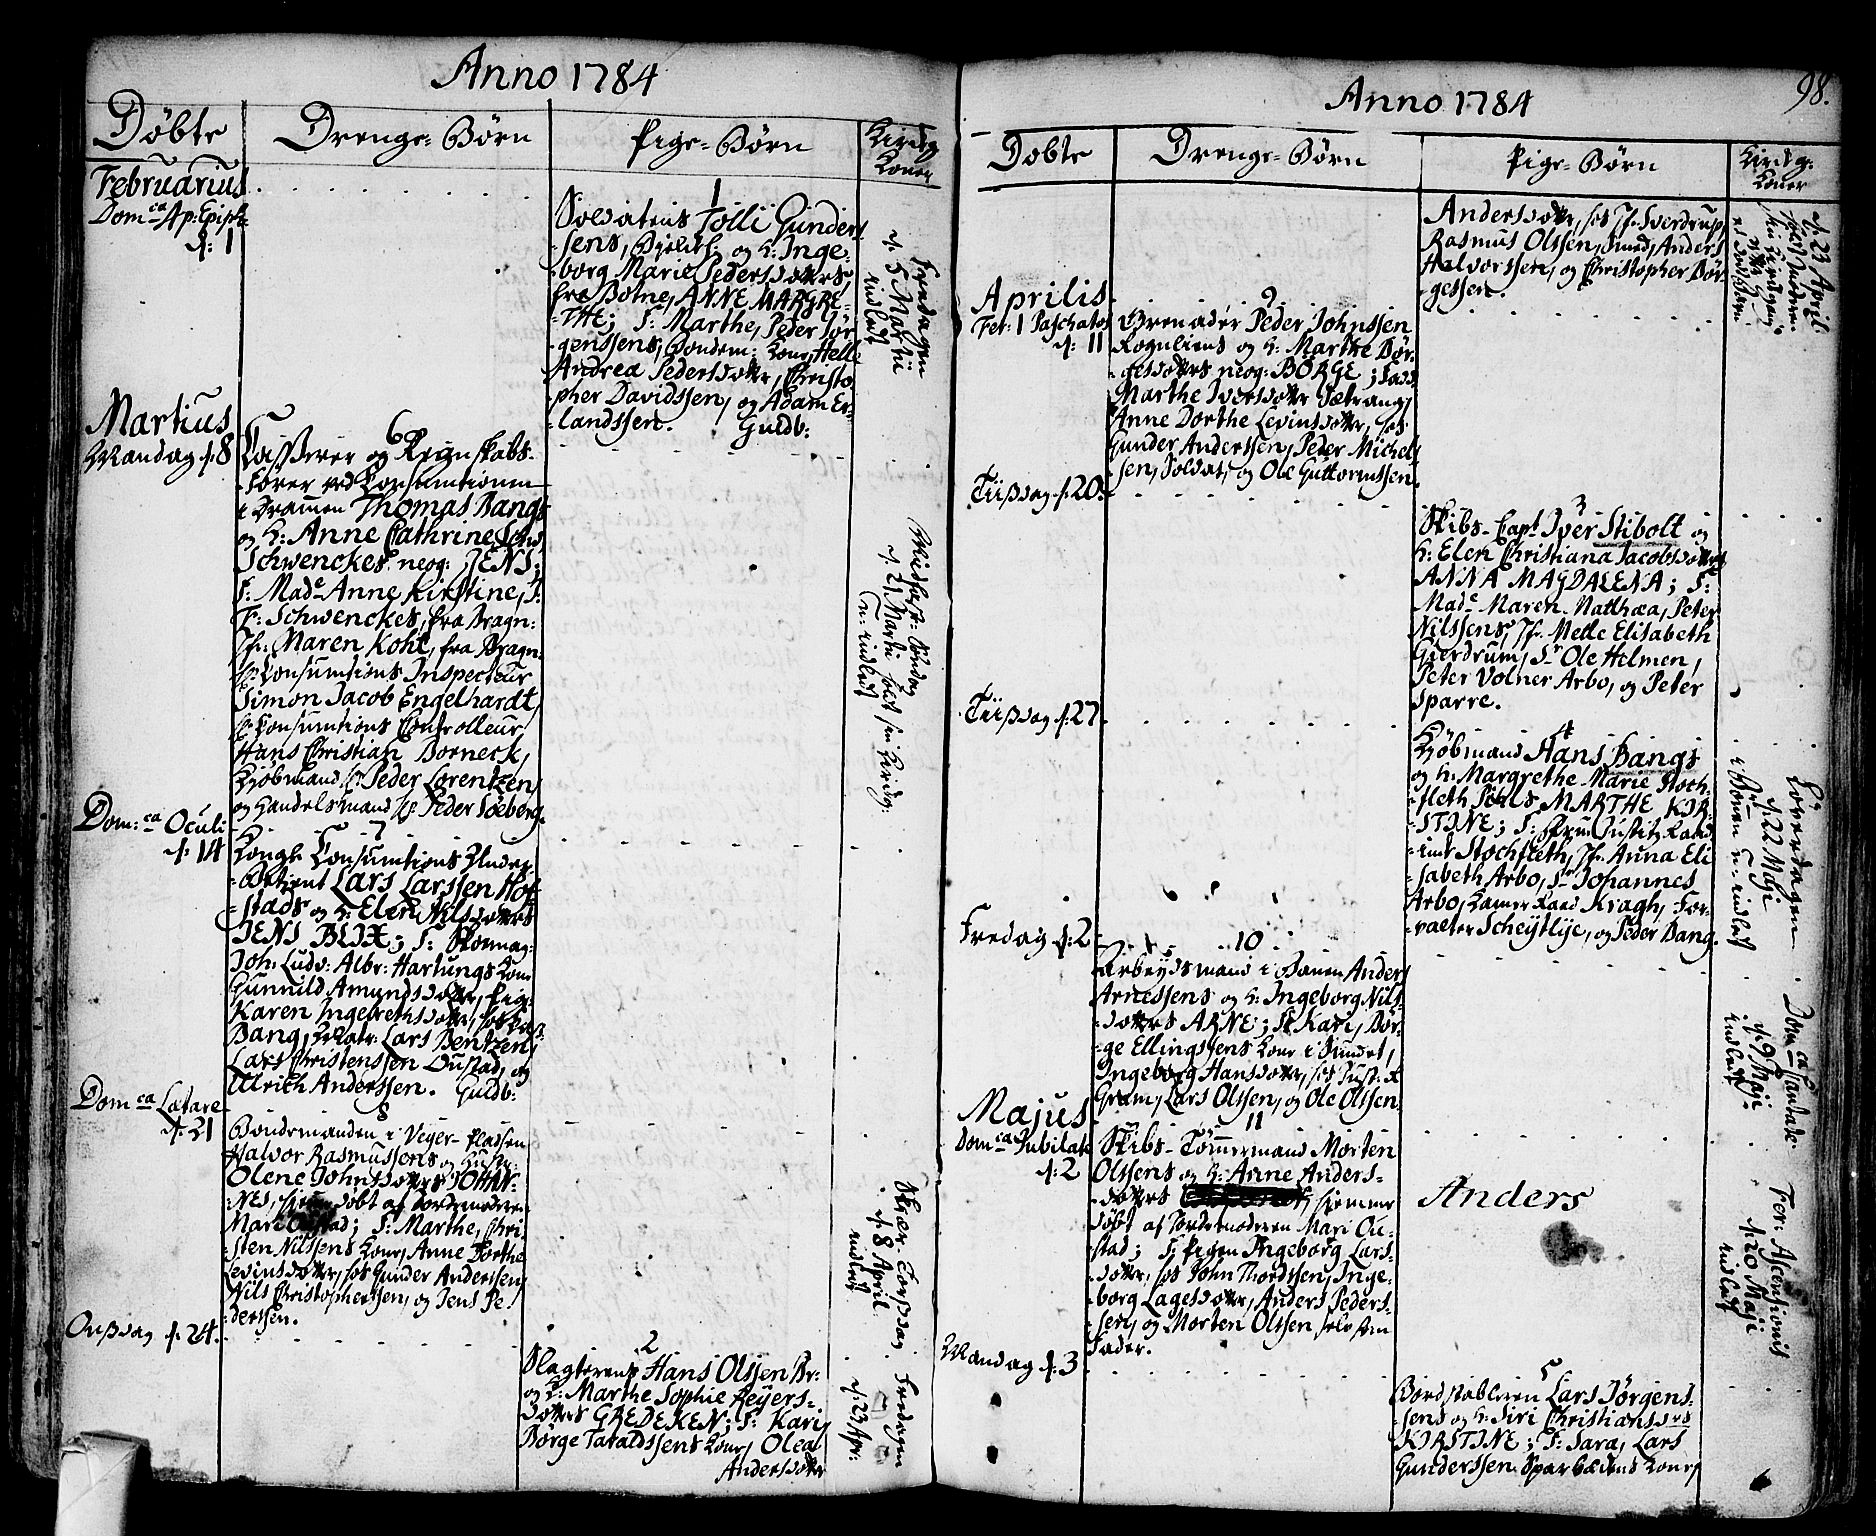 Anno 1784
Døbte
Drenge-Børn
Pige-Børn
Kirckg
Koner
Februarius
Dom ca Ap: Epiph:
d: 1
1
Soldatens Tolli Gunder-
-sens, og K: Inge-
-borg Marie Pedersdotters
fra Botne, ANNE MARGRE-
-THE; F: Marthe, Peder Jør-
-genssens, Bondem: Kone, Helle
Andrea Pedersdotter, Christo-
-pher Davidssen, og Adam Er-
-landssen. Guldb:
Fredagen
d. 5 Martii
indledt
Martius
Mandag d. 8
6
Casserer og Regnskabs-
-fører ved Consumtionen
i Dramen Thomas Bangs
og K: Anne Cathrine
Schwenckes neog: JENS;
F: Made Anne Kirstine, J:
F: Schwenckes, fra Bragn:
Jfr: Maren Kohl, fra Bragn:
Hr: Consumtions Inspecteur
Simon Jacob Engelhardt,
Hr: Consumtions Controlleur
Hans Christian Borneck,
Kjøbmand Hr: Peder Lorentzen,
og Handelsmand Hr: Peder Soeberg.
Midfast-Søndag
d. 21 Martii holdt sin Kirckg:
n: indledt
Dom: ca Oculi
d: 14
7
Kongl: Consumtions Under-
-Betient Lars Larssen Hof-
-stads og K: Elen Nilsdotters
JENS BLIX; F: Skomag:
Joh: Ludv: Albr: Hartungs Kone
Gunnild Amundsdotter, Pig:
Karen Ingebrethsdotter,
Bang, Lars Bentzen,
Lars Christenssen Oustad, og
Ulrich Anderssen. Guldb:
Dom ca Lætare
d: 21
8
Bondemanden i Veyer-Pladsen
Halvor Rasmussens og Hustr:
Olene Johnsdotters JOHAN-
-NES, hjemme døbt af Jordemoderen
Mari Oustad; F: Marthe, Chri-
-sten Nilssens Kone, Anne Dorthe
Levinsdotter, sos Gunder Anderssen,
Nils Christopherssen, og Jens Pe-
-derssen.
Skiær-Torsdag
d. 8 April
indledt
Onsdag d. 24.
2
Slagterens Hans Olssen Br:
og K: Marthe Sophie Reyers-
-dotters GREDEKEN; F: Kari,
Børge Taraldssens Kone, Olea
Andersdotter
Fredagen
d. 23 Apr:
98.
Anno 1784
Døbte
Drenge-Børn
Pige-Børn
Kirckg:
Koner
Andersdotter, sos Jfr. Sverdrup,
Rasmus Olssen, Smed, Anders
Halvorssen, og Christopher Bør-
-gessen.
d. 23 April
Aprilis
Fer: 1 Paschatos
d. 11
9
Grenadér Peder Johnssen
Rognliens og K: Marthe Bør-
-gesdotters neog: BÖRGE; Fadd:
Marthe Iversdotter Sætrang,
Anne Dorthe Levinsdotter, sos
Gunder Anderssen, Peder Michel-
-sen, Soldat, og Ole Guttormssen.
Tiisdag d: 20.
3
Skibs-Capt Iver Stibolt og
K: Elen Christiana Jacobsdotters
ANNA MAGDALENA; F:
Made Maren Matthæa, Peter
Nilssens, Jfr. Mette Elisabeth
Gierdrum, Sr Ole Helmen,
Peter Volner Arbo, og Peter
Sparre.
Tiisdag d: 27.
4
Kjøbmand Hans Bangs
og K: Margrethe Marie Stoch-
-fleth MARTHE KIR-
-STINE; F: Frue Justitz Raad-
-inde Stochfleth, Jfr. Anna Eli-
-sabeth Arbo, Sr Johannes
Arbo, Kamer Raad Kragh, For-
-valter Scheytlye, og Peder Bang.
Löverdagen
d. 22 Maje
i Bönen n: indledt
Fredag d: 2
10
Arbeydsmand i Bönen Anders
Arnessens og K: Ingeborg Nils-
-dotters ARNE; F: Kari, Bør-
-ge Ellingssens Kone i Sundet,
Ingeborg Hansdotter, sos Just: A
Gram, Lars Olssen, og Ole Olssen.
Dom ca Cantate
d. 9 Maje
indledt
Majus
Dom ca Jubilate
d: 2
11
Skibs-Tømmermand Morten
Olssens og K: Anne Anders-
-dotters hjemme
døbt af Jordemoderen Mari Ou-
-stad; F: Pigen Ingeborg Lars-
-dotter, sos John Thordssen, Inge-
-borg Lagesdotter, Anders Peders-
-sen, og Morten Olssen, selv som
Fader.
Anders
Fer: Ascensionis
d. 20 Maje
indledt
Mandag d: 3
5
Bordstableren Lars Jörgens-
-sens og K: Siri Christiansdrs
KIRSTINE; F: Sara, Lars
Gunderssen Sparbœdens Kone,